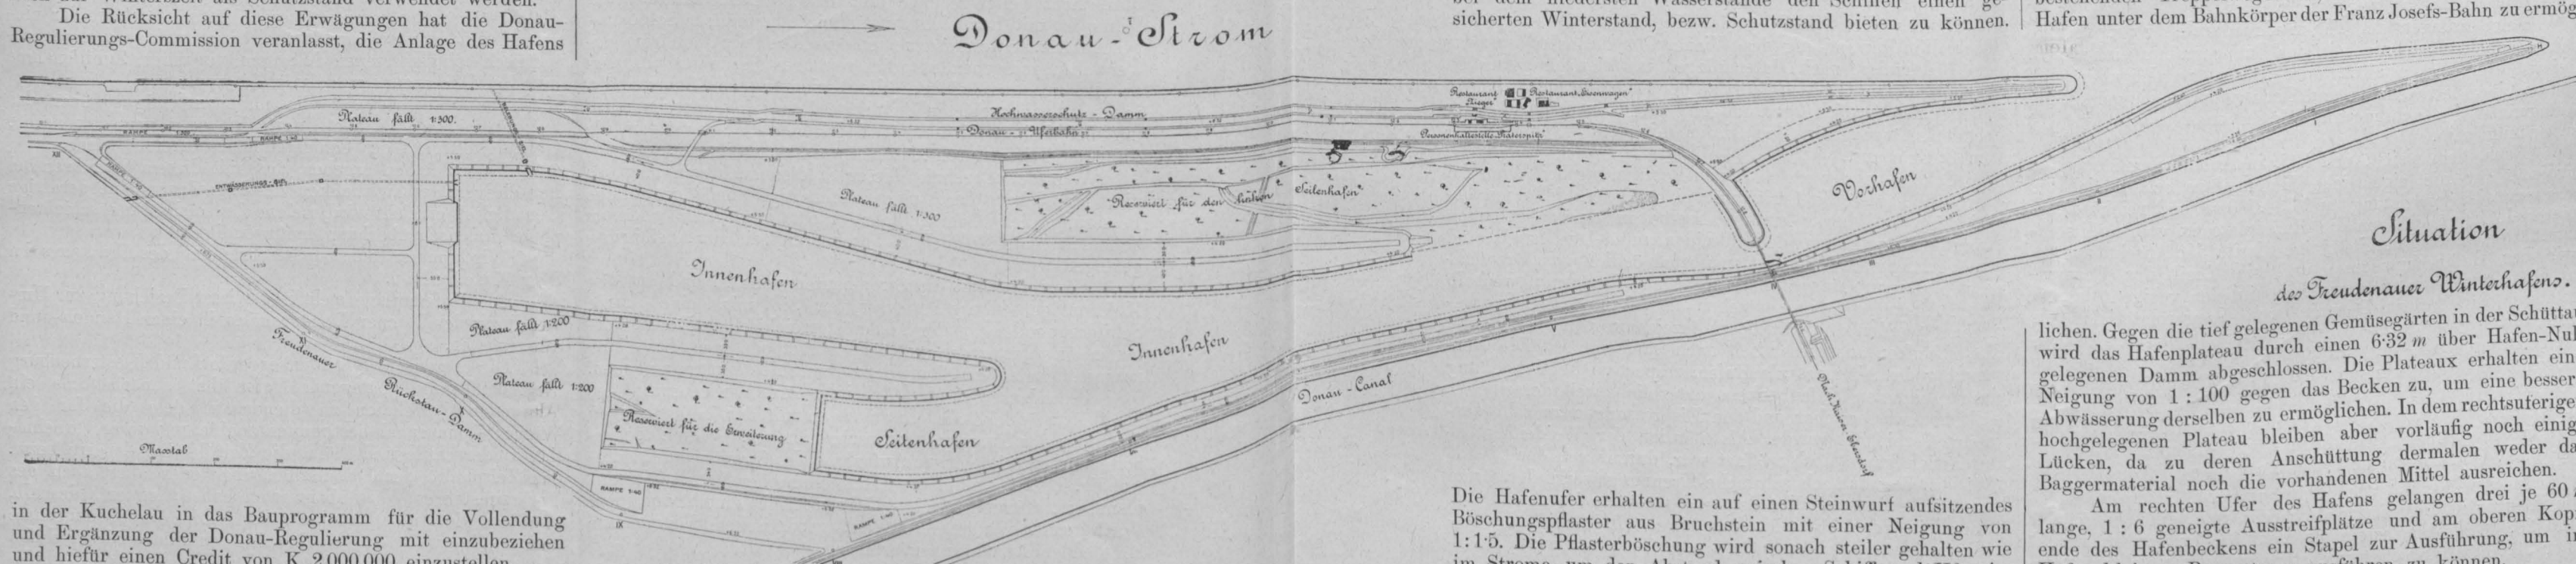 Die Rücksicht auf diese Erwägungen hat die Donau-
Regulierungs-Commission veranlasst, die Anlage des Hafens
sicherten Winterstand, bezw. Schutzstand bieten zu können.
Hafen unter dem Bahnkörper der Franz Josefs-Bahn zu ermög
Donau-Strom
Restaurant
Rieger
Restaurant „Eisenwagen"
Plateau fällt 1:300.
Hochwasserschutz-Damm
Donau-Uferbahn
Personenhaltestelle „Praterspitz"
RAMPE 1:40
RAMPE 1:40
ENTWÄSSERUNGS-
Plateau fällt 1:300
Reserviert für den linken Seitenhafen
Vorhafen
Situation
des Freudenauer Winterhafens.
Innenhafen
Innenhafen
Plateau fällt 1:200
Freudenauer Rückstau-Damm
Plateau fällt 1:200
Reserviert für die Erweiterung
Seitenhafen
Donau-Canal
Nach Kaiser Ebersdorf
Masstab
RAMPE 1:40
IX
RAMPE 1:40
in der Kuchelau in das Bauprogramm für die Vollendung
und Ergänzung der Donau-Regulierung mit einzubeziehen
und hiefür einen Credit von K 2,000.000 einzustellen
Die Hafenufer erhalten ein auf einen Steinwurf aufsitzendes
Böschungspflaster aus Bruchstein mit einer Neigung von
1:1·5. Die Pflasterböschung wird sonach steiler gehalten wie
lichen. Gegen die tief gelegenen Gemüsegärten in der Schüttau
wird das Hafenplateau durch einen 6·32 m über Hafen-Nul
gelegenen Damm abgeschlossen. Die Plateaux erhalten ein
Neigung von 1 : 100 gegen das Becken zu, um eine besser
Abwässerung derselben zu ermöglichen. In dem rechtsuferige
hochgelegenen Plateau bleiben aber vorläufig noch einig
Lücken, da zu deren Anschüttung dermalen weder da
Baggermaterial noch die vorhandenen Mittel ausreichen.
Am rechten Ufer des Hafens gelangen drei je 60
lange, 1 : 6 geneigte Ausstreifplätze und am oberen Kop
ende des Hafenbeckens ein Stapel zur Ausführung, um i